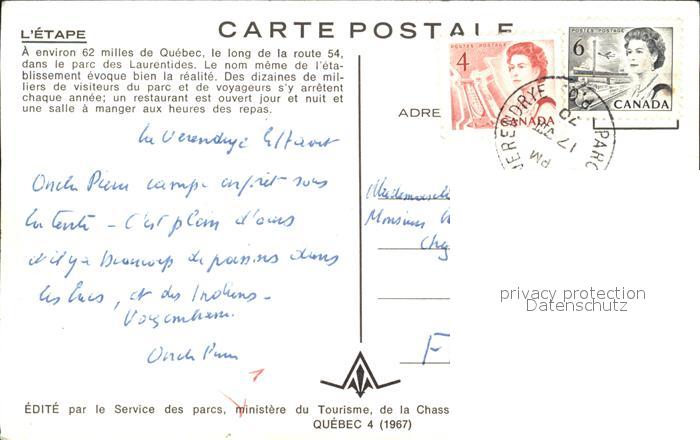 L'ÉTAPE
CARTE POSTALE
À environ 62 milles de Québec, le long de la route 54,
dans le parc des Laurentides. Le nom même de l'éta-
blissement évoque bien la réalité. Des dizaines de mil-
liers de visiteurs du parc et de voyageurs s'y arrêtent
chaque année; un restaurant est ouvert jour et nuit et
une salle à manger aux heures des repas.
POSTES POSTAGE
4
CANADA
POSTES POSTAGE
6
CANADA
PARC
17
PM
70
ADRE
La Verendrye
Oncle Pierre campe en forêt sous
la tente - C'est plein d'ours
et il y a beaucoup de poissons dans
les lacs, et des Indiens -
Oncle Pierre
Mademoiselle
Monsieur
F
privacy protection
Datenschutz
ÉDITÉ par le Service des parcs, ministère du Tourisme, de la Chass
QUÉBEC 4 (1967)